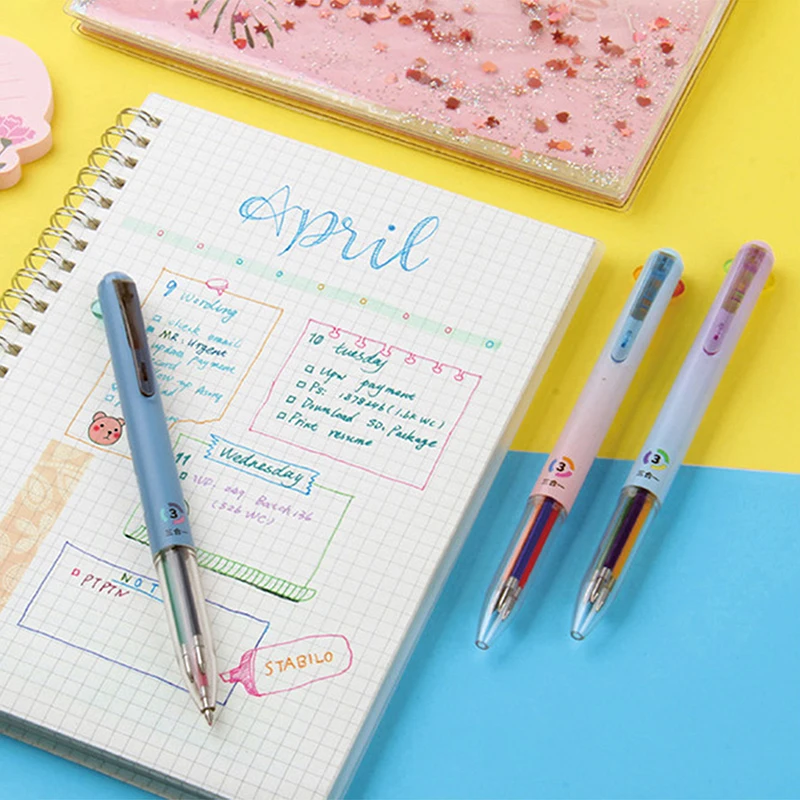 April
9
check email
MR. Urgent
10 tuesday
Upw payment
Ps: 1378246 (1.6k WC)
Download SD. Package
Print resume
11 Wednesday
UPW. Batch 136
(526 WC)
NOT
PTPTN
STABILO
3
三合一
3
三合一
3
三合一